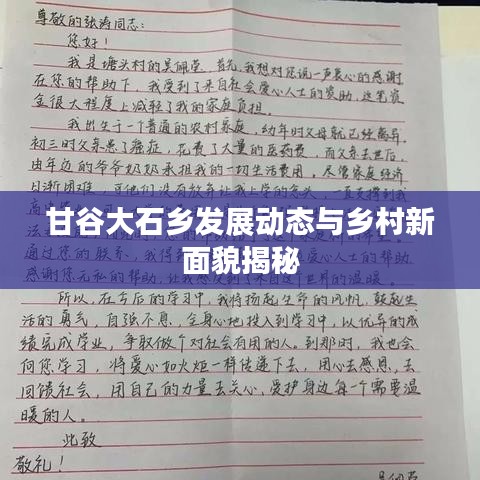 尊敬的张涛同志:
您好!
我是塘头村的吴佩莹,首先,我想对您说一声衷心的感谢
在您的帮助下,我受到了来自社会爱心人士的资助,这笔资
金很大程度上减轻了我的家庭负担。
我出生于一个普通的农村家庭,幼年时父母就已经离异,
初三时父亲患了癌症,花费了大量的医药费,而父亲去世后,
由年迈的爷爷奶奶承担我的一切生活费用。尽管家庭经济
日渐困难,可他们没有放弃让我上学的念头,一直支撑我
甘谷大石乡发展动态与乡村新
面貌揭秘
通过您的联系,我得
爱心人士的帮助
感谢您无私的帮助,
这个世界的温暖。
所以,在今后的学习中,我将扬起生命的风帆,鼓起生
活的勇气,自强不息,全身心地投入到学习中,以优异的成
绩完成学业,争取做个对社会有用的人。到那时,我也会
向您学习,将爱心如火炬一样传递下去,用心去感恩,去
回馈社会,用自己的力量去关心,爱护身边每一个需要温
暖的人。
此致
敬礼!